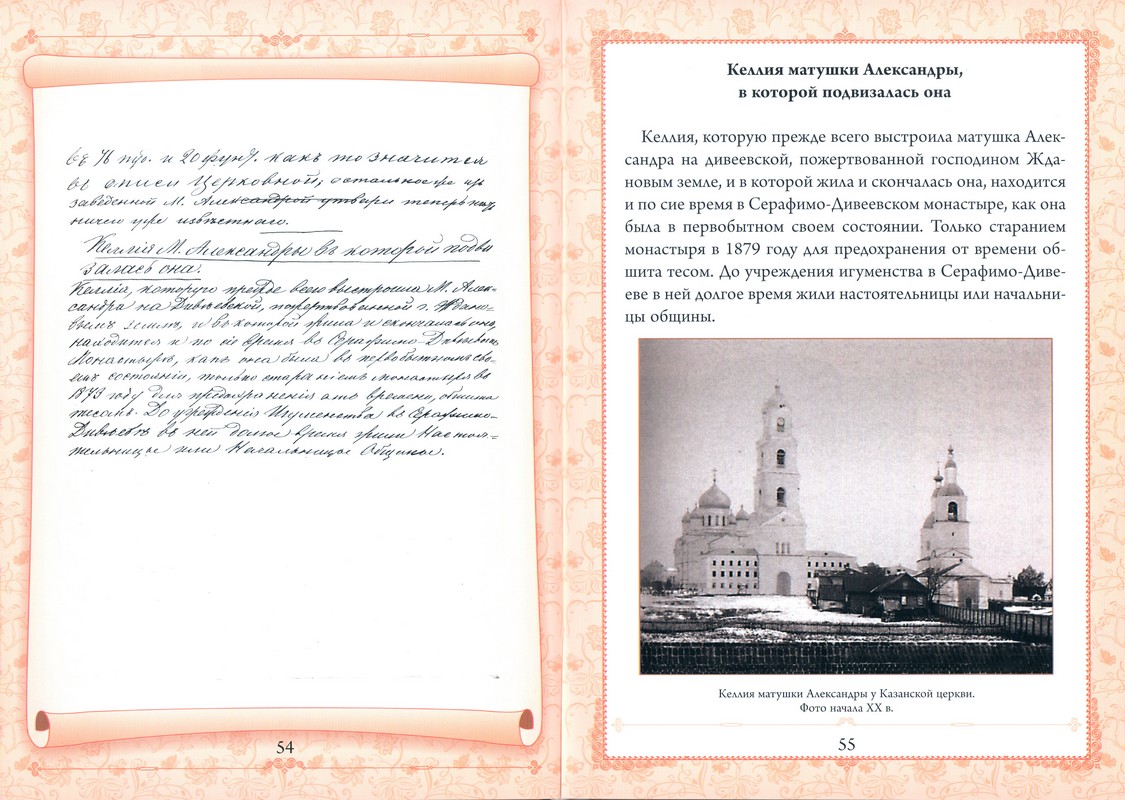 въ 76 пуд. и 20 фунт. какъ то значится
въ описи Церковной; остальное же изъ
заведенной М. Александрой утвари теперь
ничего уже извѣстнаго.
Келлія М. Александры въ которой подви
залась она.
Келлія, которую прежде всего выстроила М. Алек-
сандра на Дивѣевской, пожертвованной г. Ждано-
вымъ землѣ, и въ которой жила и скончалась она,
находится и по сіе время въ Серафимо-Дивѣевскомъ
Монастырѣ, какъ она была въ первобытномъ сво-
емъ состояніи, только стараніемъ монастыря въ
1879 году для предохраненія отъ времени, обшита
тесомъ. До учрежденія Игуменства въ Серафимо-
Дивѣевѣ въ ней долгое время жили Настоя-
тельницы или Начальницы Общины.
54
Келлия матушки Александры,
в которой подвизалась она
Келлия, которую прежде всего выстроила матушка Алек-
сандра на дивеевской, пожертвованной господином Жда-
новым земле, и в которой жила и скончалась она, находится
и по сие время в Серафимо-Дивеевском монастыре, как она
была в первобытном своем состоянии. Только старанием
монастыря в 1879 году для предохранения от времени об-
шита тесом. До учреждения игуменства в Серафимо-Диве-
еве в ней долгое время жили настоятельницы или начальни-
цы общины.
Келлия матушки Александры у Казанской церкви.
Фото начала XX в.
55